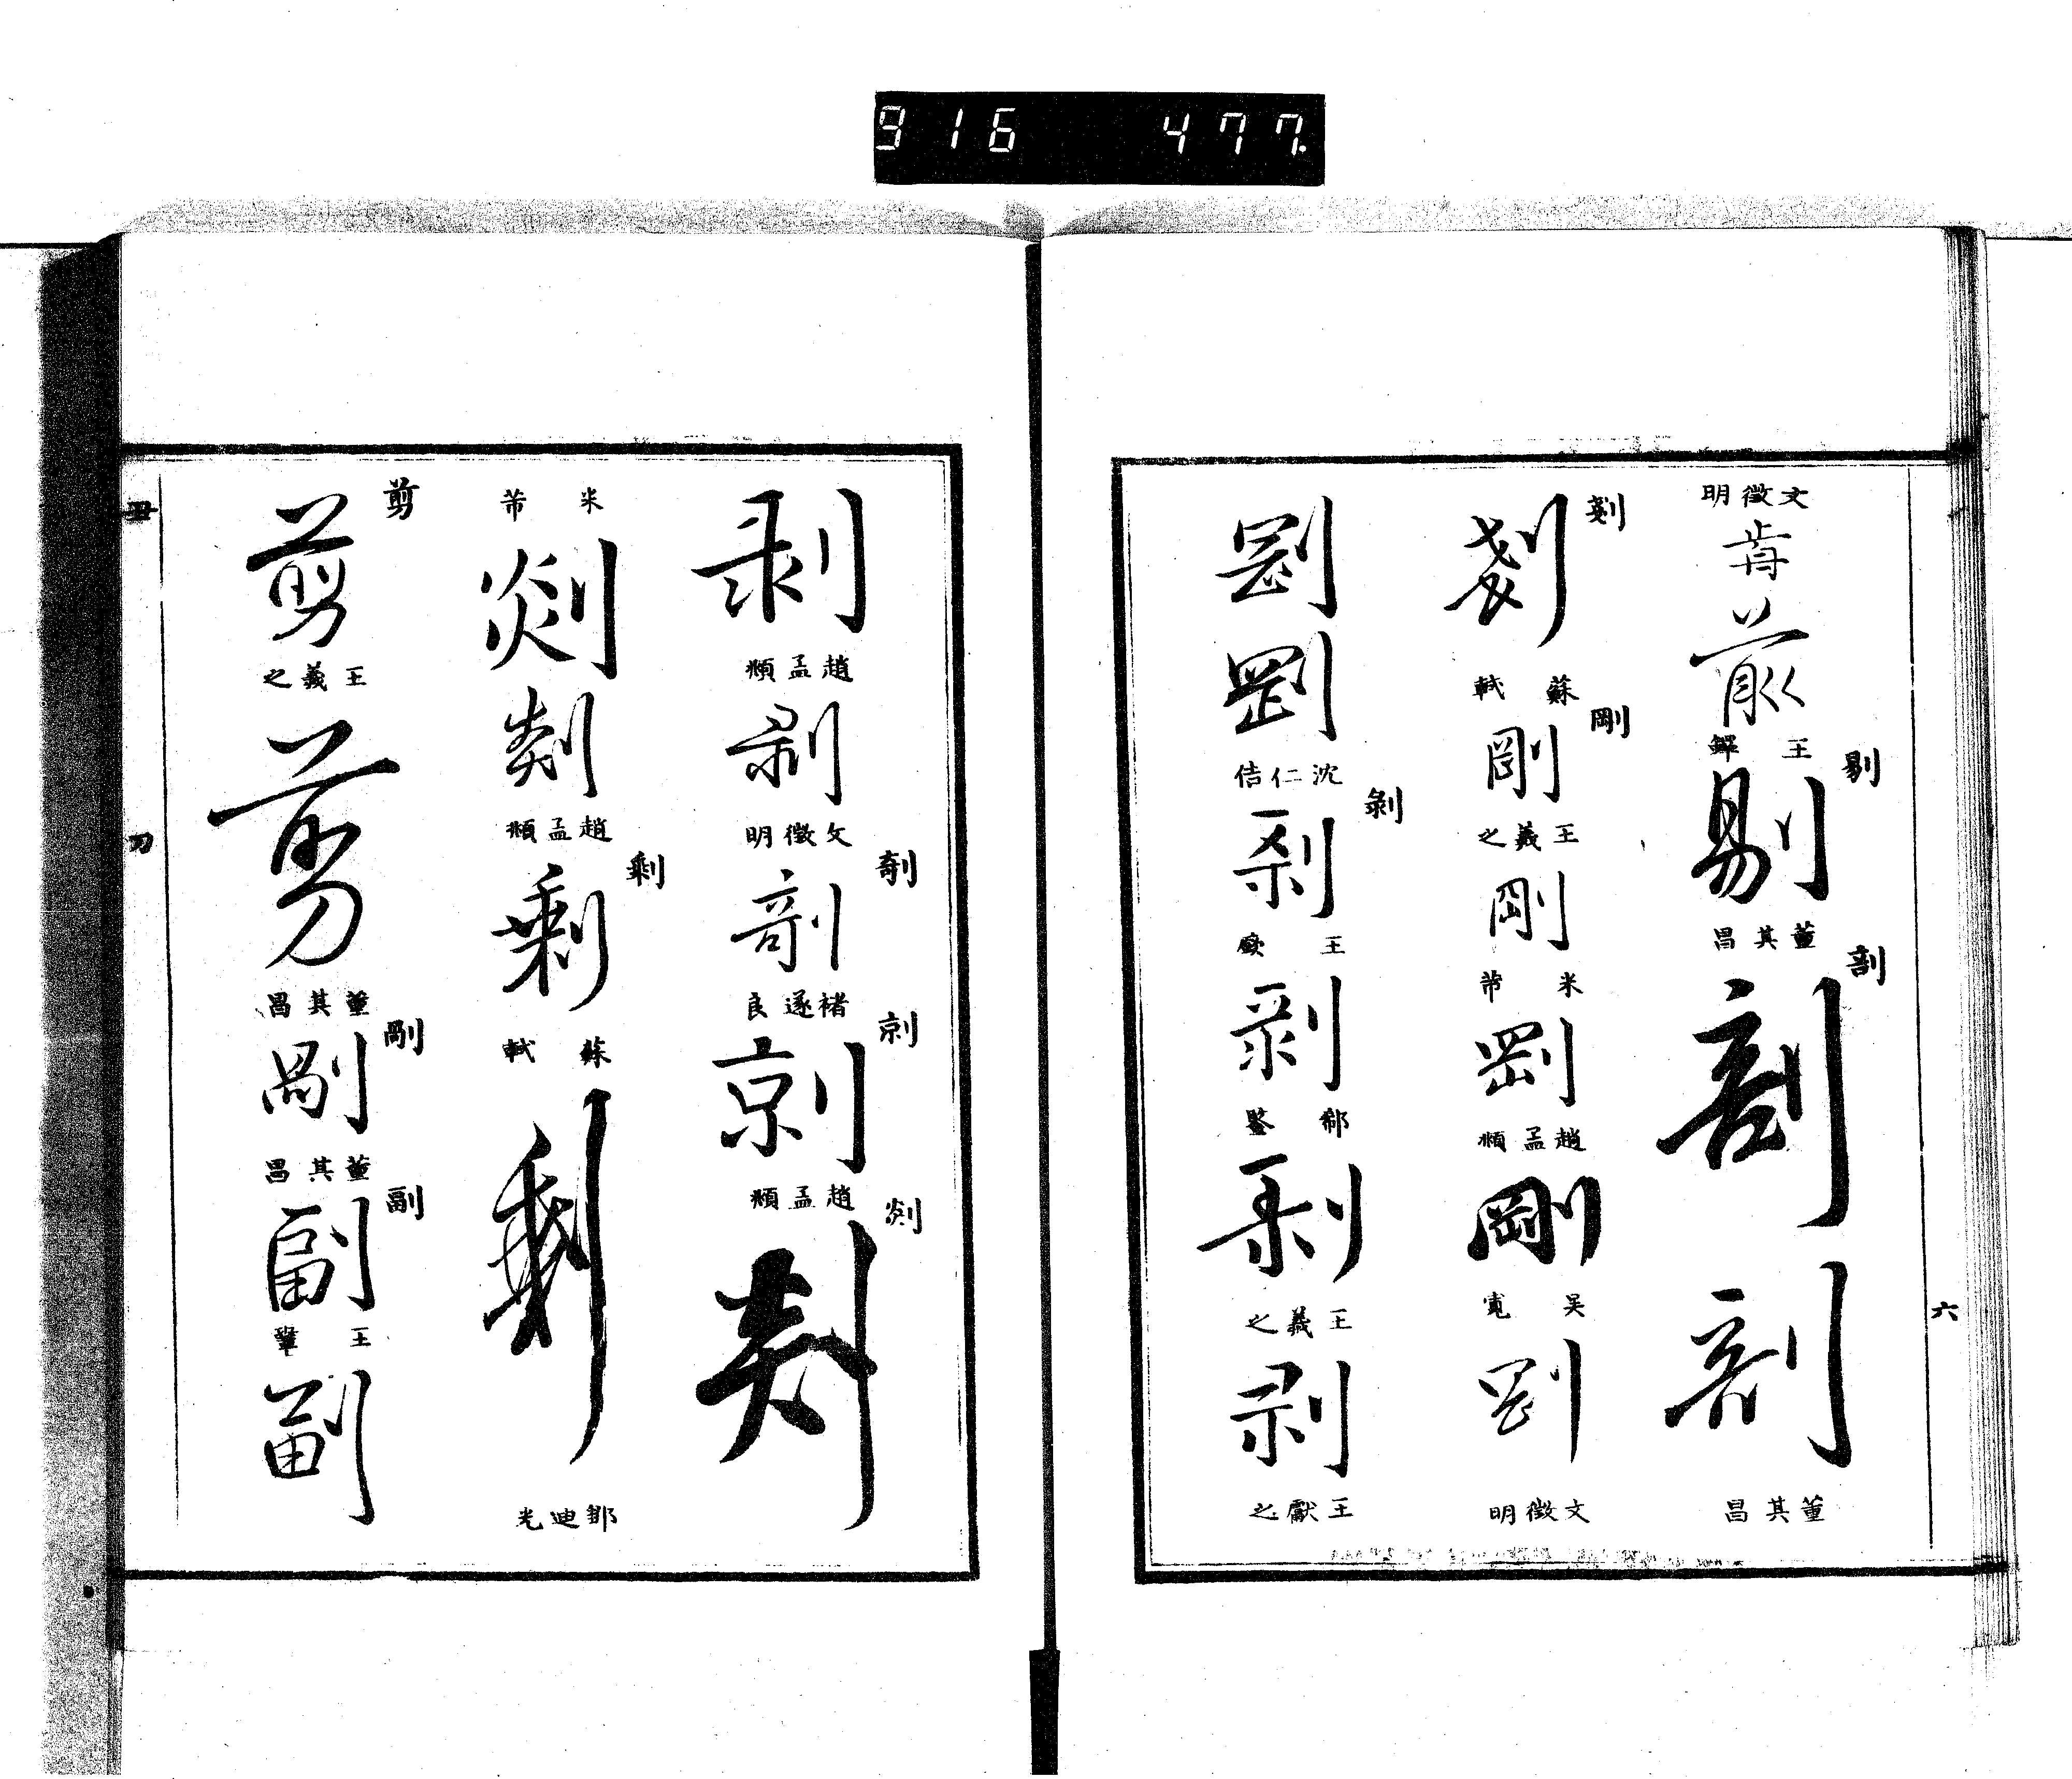 916 477.
文徵明
前
前
王鐸
剔
剔
董其昌
剖
剖
剖
董其昌
六
剗
蘇軾
剛
剛
王羲之
剛
米芾
剛
趙孟頫
剛
吳寬
剛
文徵明
剛
剛
沈仁佶
剝
剝
王
剝
郗鑒
剝
王羲之
剝
王獻之
剝
趙孟頫
剝
文徵明
剞
剞
褚遂良
剠
剠
趙孟頫
剡
剡
米芾
剡
剡
趙孟頫
剩
剩
蘇軾
剩
鄒迪光
剪
剪
王羲之
剪
董其昌
剮
剮
董其昌
副
副
王鞏
副
丑
刀